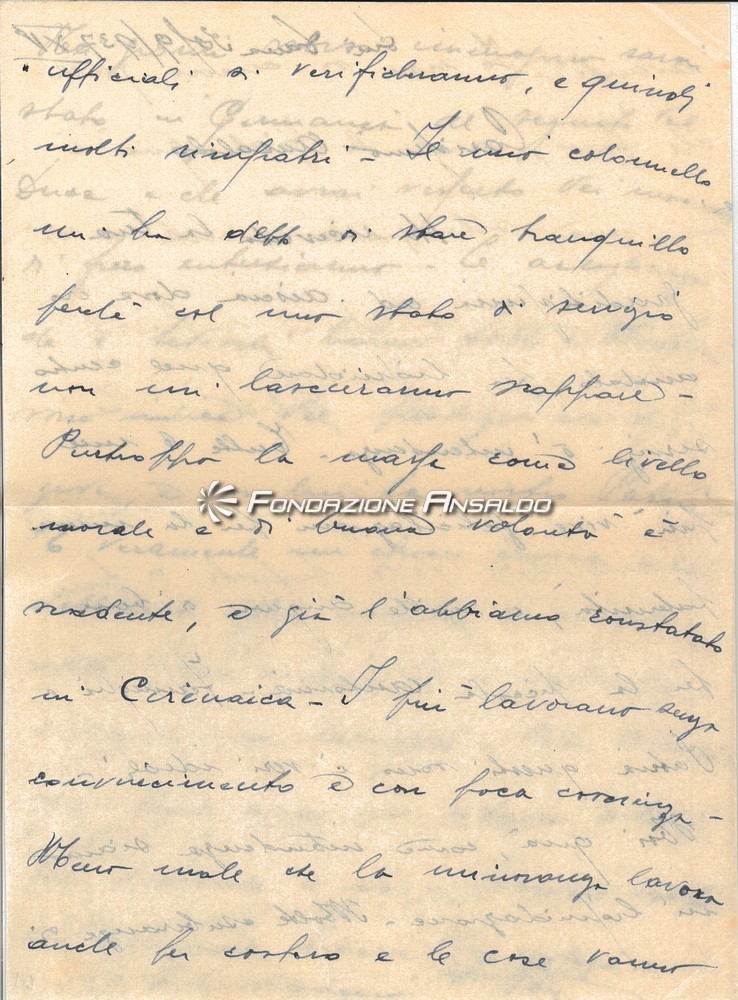 ufficiali si verificheranno, e quindi
molti rimpatri - Il mio colonnello
mi ha detto di stare tranquillo
perchè col mio stato di servizio
non mi lascieranno scappare -
Purtroppo la massa come livello
FONDAZIONE ANSALDO
morale e di buona volontà è
scadente, e già l'abbiamo constatato
in Cirenaica - I più lavorano senza
convincimento e con poca coscienza -
Meno male che la minoranza lavora
anche per costoro e le cose vanno